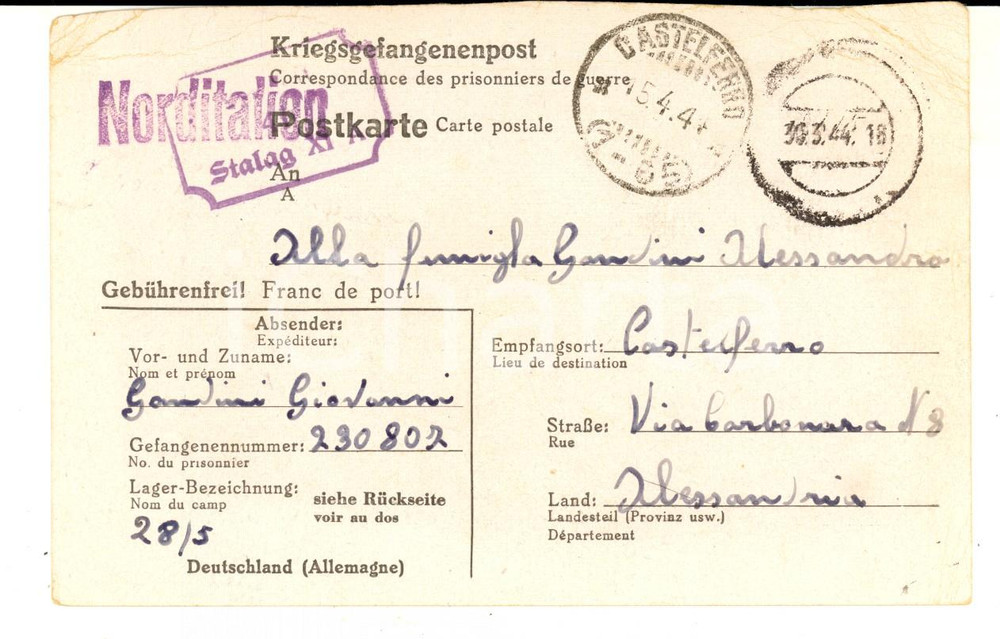 Kriegsgefangenenpost
Correspondance des prisonniers de guerre
Norditalien
Postkarte Carte postale
Stalag XI A
An
A
CASTELFERRO
15.4.44
30.3.44. 18
Alla famiglia Gandini Alessandro
Gebührenfrei! Franc de port!
Absender:
Expéditeur:
Vor- und Zuname:
Nom et prénom
Gandini Giovanni
Gefangenennummer: 230802
No. du prisonnier
Lager-Bezeichnung:
Nom du camp
siehe Rückseite
voir au dos
28/5
Deutschland (Allemagne)
Empfangsort: Castelferro
Lieu de destination
Straße: Via Carbonara N 8
Rue
Land: Alessandria
Landesteil (Provinz usw.)
Département